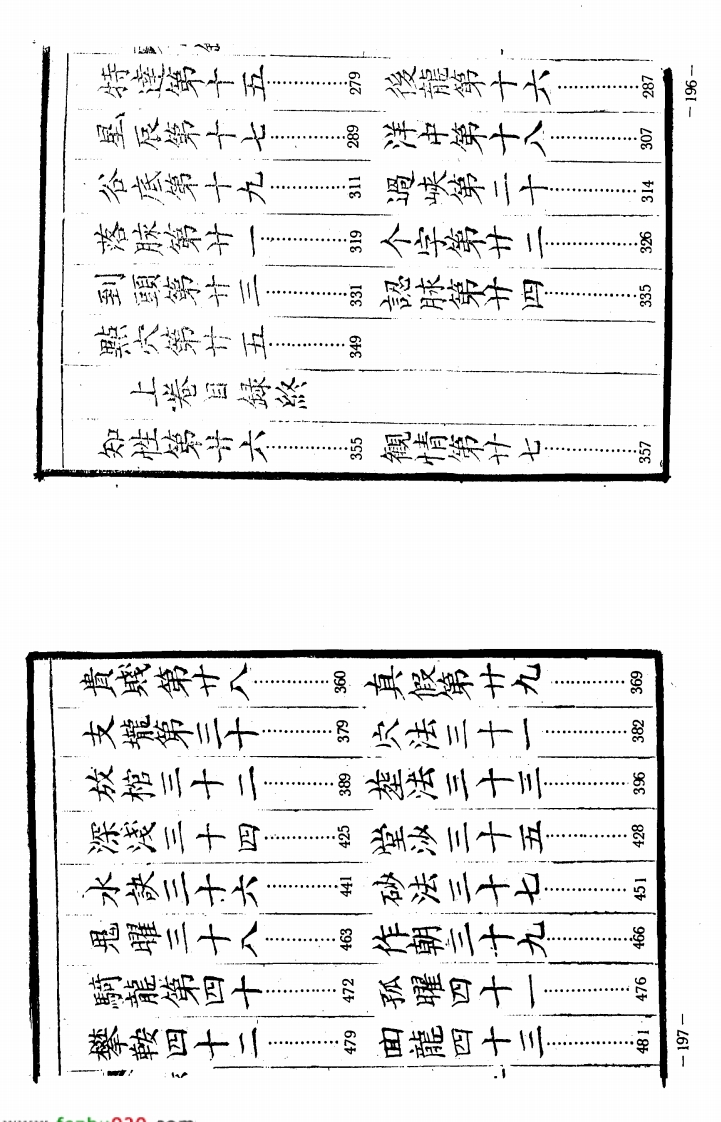 特達第十五…………279 後龍第十六…………287
星辰第十七…………289 洋中第十八…………307
谷底第十九…………311 過峽第二十…………314
落脉第廿一…………319 个字第廿二…………326
到頭第廿三…………331 認脉第廿四…………335
點穴第廿五…………349
上卷目録終
知性第廿六…………355 觀情第廿七…………357
—196—
貴賤第廿八…………360 真假第廿九…………369
支壠第三十…………379 穴法三十一…………382
放棺三十二…………389 葬法三十三…………396
深淺三十四…………425 堂沙三十五…………428
水訣三十六…………441 砂法三十七…………451
鬼曜三十八…………463 作朝三十九…………466
騎龍第四十…………472 孤曜四十一…………476
攀鞍四十二…………479 回龍四十三…………481
—197—